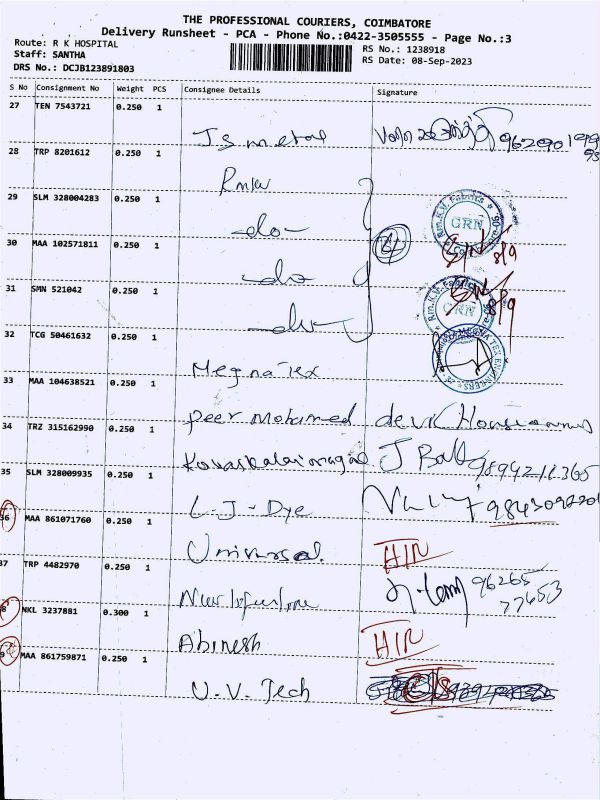 THE PROFESSIONAL COURIERS, COIMBATORE
Delivery Runsheet - PCA - Phone No.:0422-3505555 - Page No.:3
Route: R K HOSPITAL
RS No.: 1238918
Staff: SANTHA
RS Date: 08-Sep-2023
DRS No.: DCJB123891803
S No Consignment No Weight PCS Consignee Details Signature
27 TEN 7543721 0.250 1
J S metal
28 TRP 8201612 0.250 1
Rmkv
29 SLM 328004283 0.250 1
-do-
Rm.K.V. Fabrics
GRN
8/9
30 MAA 102571811 0.250 1
-do-
31 SMN 521042 0.250 1
-do-
Rm.K.V. Fabrics
GRN
8/9
32 TCG 50461632 0.250 1
Megna Tex
33 MAA 104638521 0.250 1
Peer Mohamed
34 TRZ 315162990 0.250 1
35 SLM 328009935 0.250 1
L.J - Dye
36 MAA 861071760 0.250 1
Universal HIN
37 TRP 4482970 0.250 1
96265
77653
38 NKL 3237881 0.300 1
Abinesh HIN
39 MAA 861759871 0.250 1
U.V. Tech